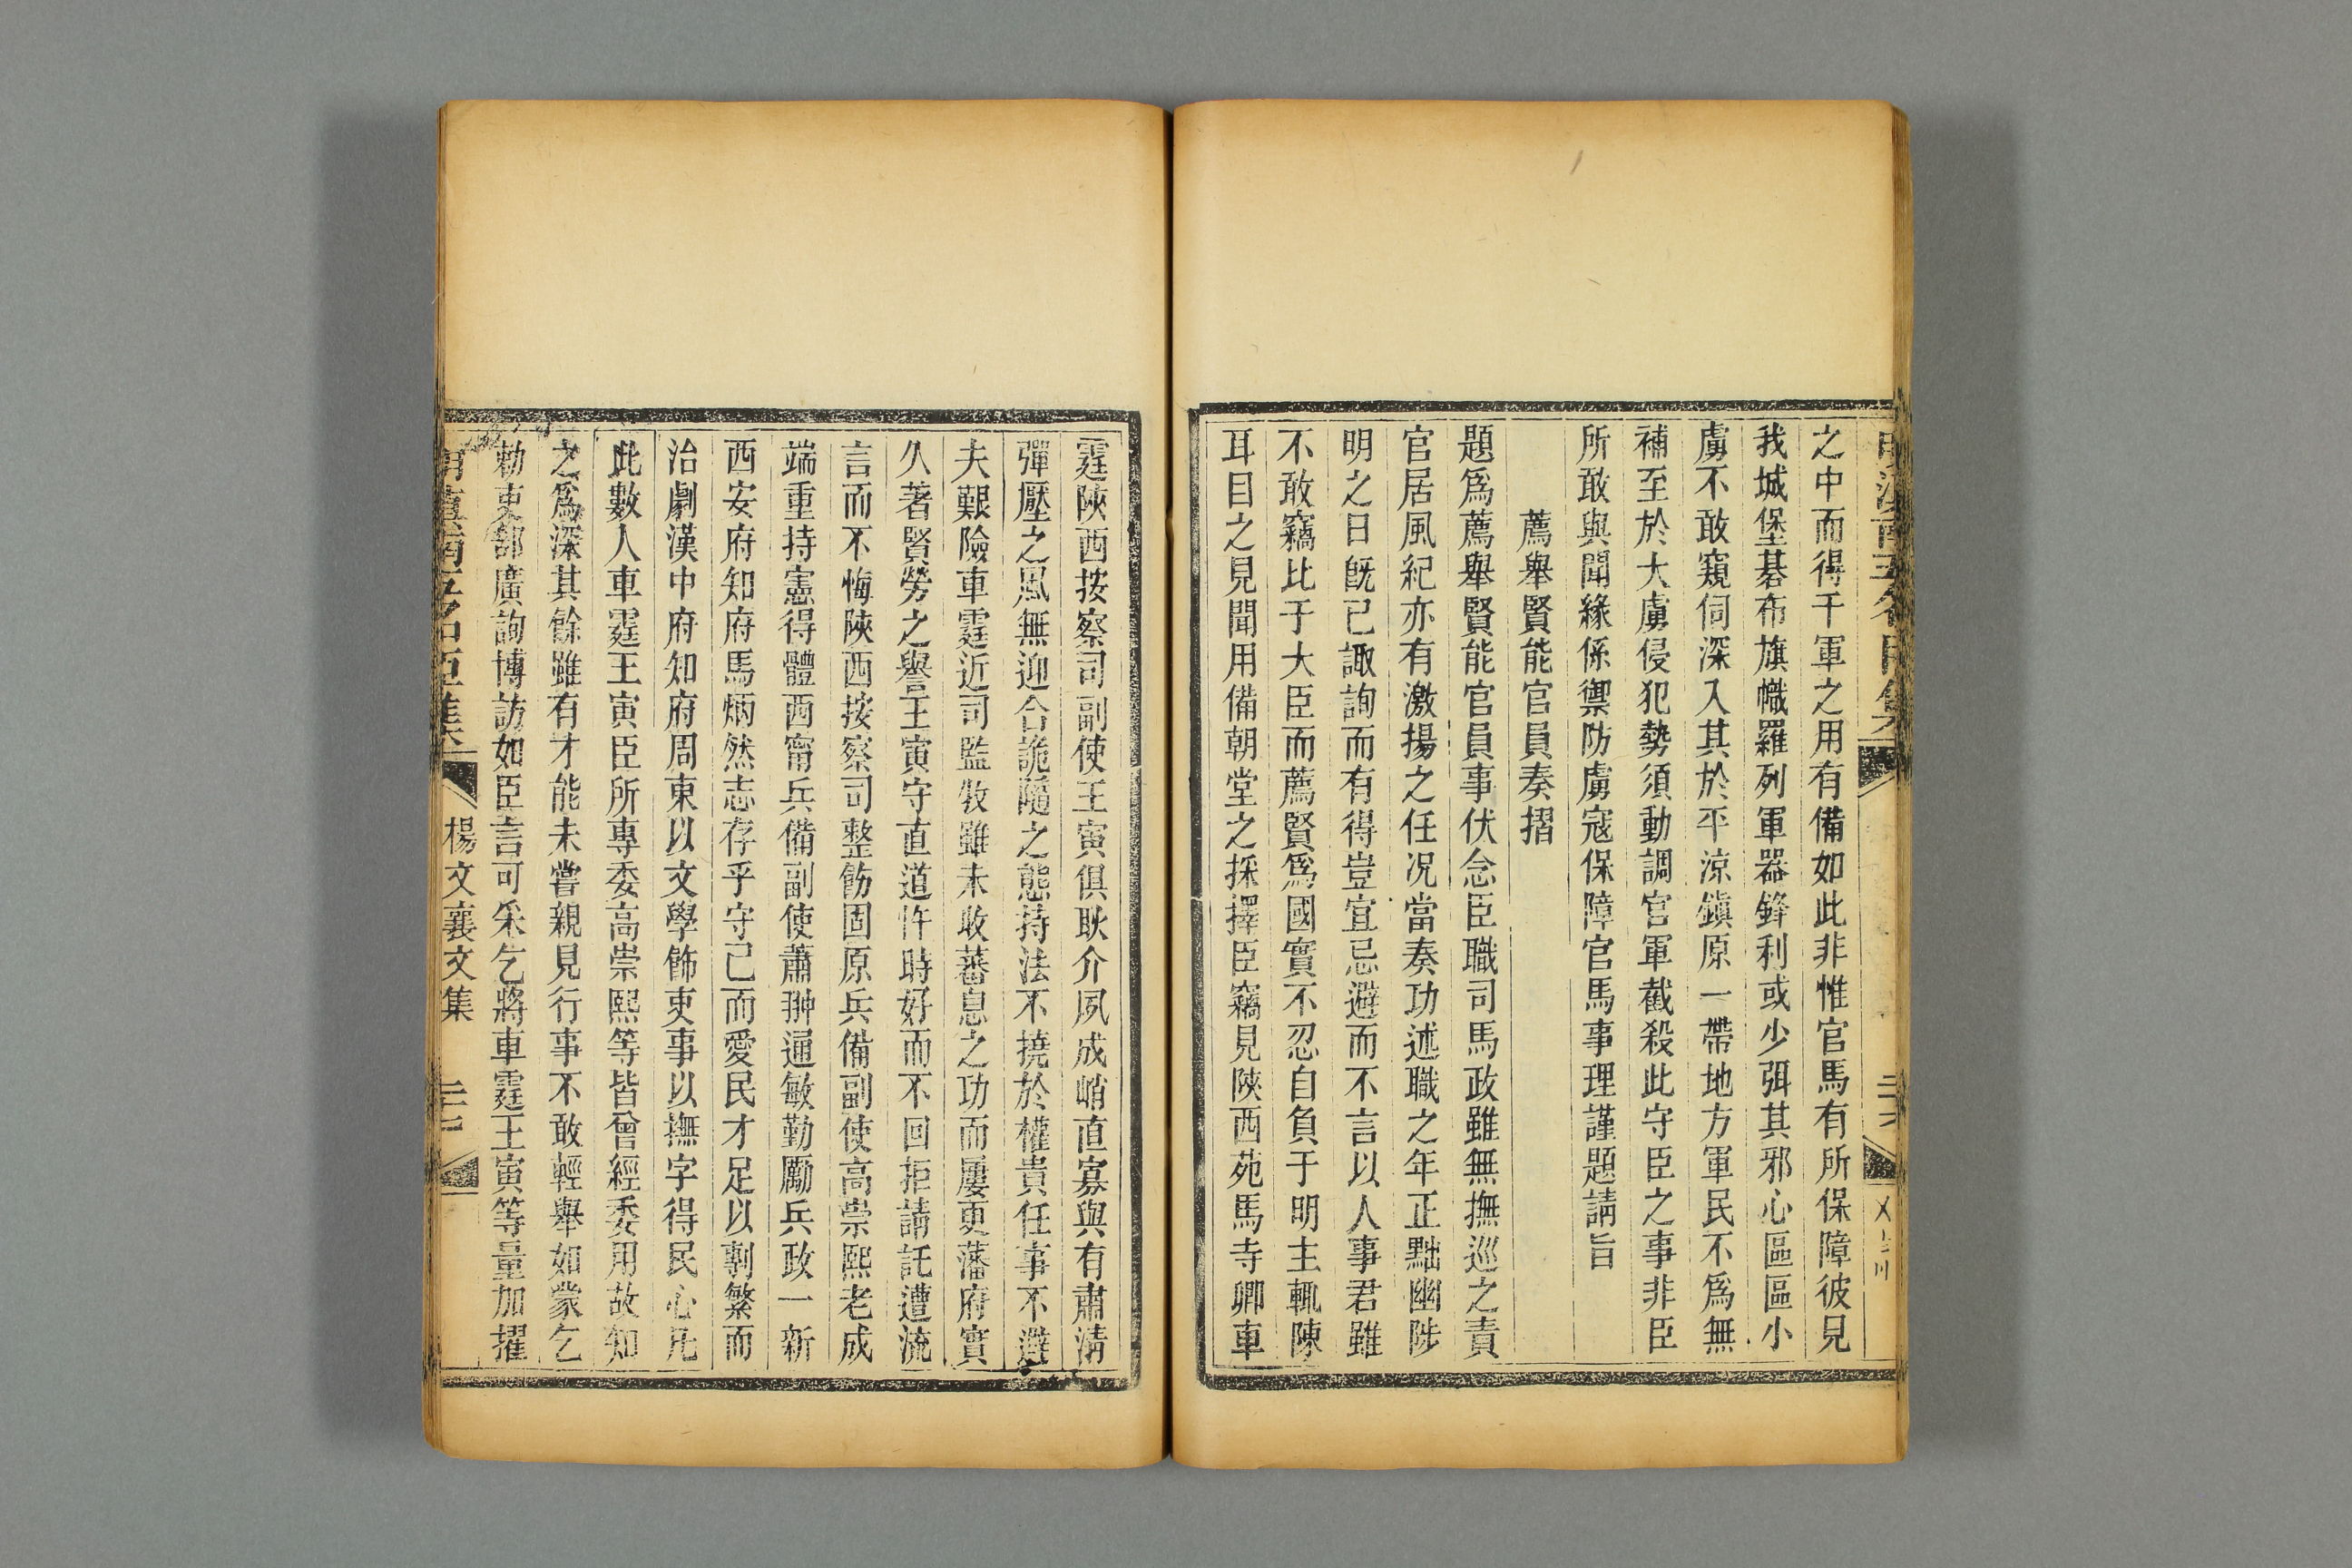 之中而得千軍之用有備如此非惟官馬有所保障彼見
我城堡碁布旗幟羅列軍器鋒利或少弭其邪心區區小
虜不敢窺伺深入其於平涼鎮原一帶地方軍民不爲無
補至於大虜侵犯勢須動調官軍截殺此守臣之事非臣
所敢與聞緣係禦防虜寇保障官馬事理謹題請旨
薦舉賢能官員奏摺
題爲薦舉賢能官員事伏念臣職司馬政雖無撫巡之責
官居風紀亦有激揚之任况當奏功述職之年正黜幽陟
明之日既已諏詢而有得豈宜忌避而不言以人事君雖
不敢竊比于大臣而薦賢爲國實不忍自負于明主輒陳
耳目之見聞用備朝堂之採擇臣竊見陝西苑馬寺卿車
霆陝西按察司副使王寅俱耿介夙成峭直寡與有肅淸
彈壓之風無迎合詭隨之態持法不撓於權貴任事不避
夫艱險車霆近司監牧雖未收蕃息之功而屢更藩府實
久著賢勞之譽王寅守直道忤時好而不回拒請託遭流
言而不悔陝西按察司整飭固原兵備副使高崇熙老成
端重持憲得體西甯兵備副使蕭翀通敏勤勵兵政一新
西安府知府馬炳然志存乎守己而愛民才足以剸繁而
治劇漢中府知府周東以文學飾吏事以撫字得民心凡
此數人車霆王寅臣所專委高崇熙等皆曾經委用故知
之爲深其餘雖有才能未嘗親見行事不敢輕舉如蒙乞
勅吏部廣詢博訪如臣言可采乞將車霆王寅等量加擢
楊文襄文集